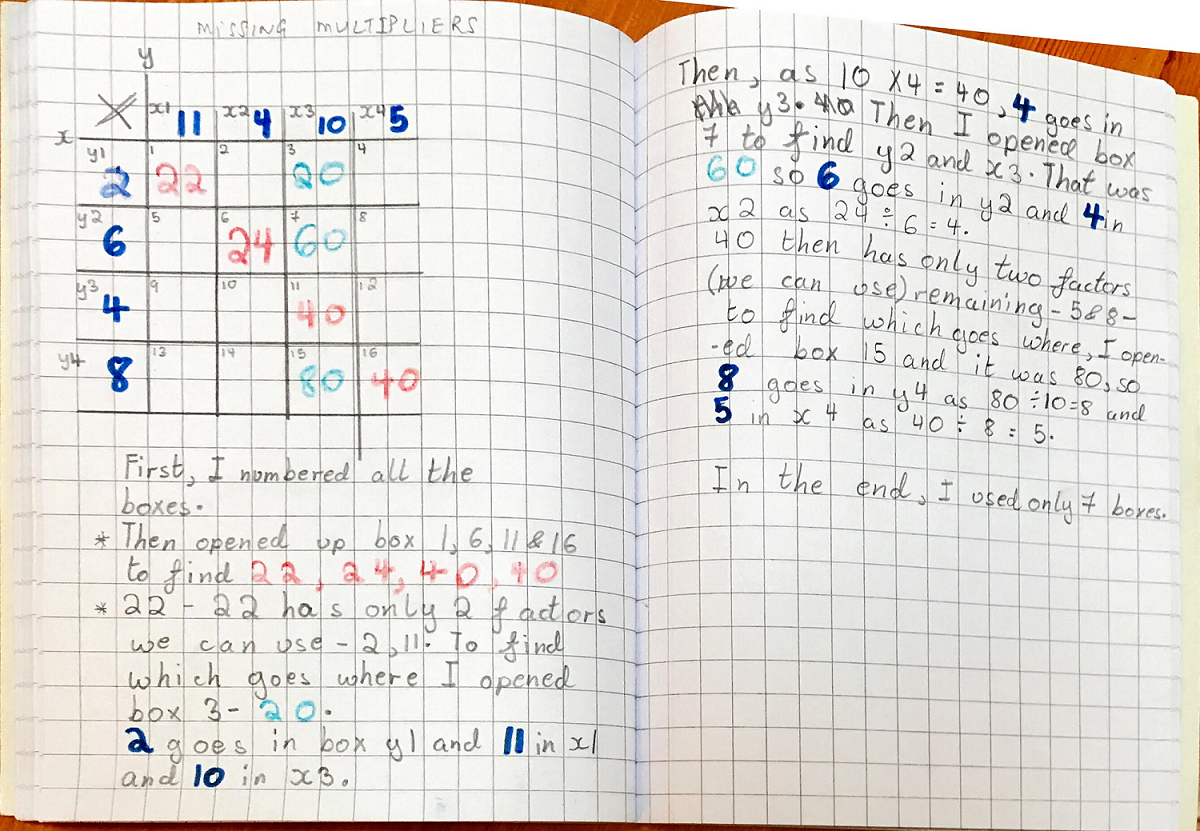 MISSING MULTIPLIERS
y
X x1 11 x2 4 x3 10 x4 5
x
y1 2 1 22 2 3 20 4
y2 6 5 6 24 7 60 8
y3 4 9 10 11 40 12
y4 8 13 14 15 80 16 40
First, I numbered all the
boxes.
* Then opened up box 1, 6, 11 & 16
to find 22, 24, 40, 40
* 22 - 22 has only 2 factors
we can use - 2, 11. To find
which goes where I opened
box 3 - 20.
2 goes in box y1 and 11 in x1
and 10 in x3.
Then, as 10 x 4 = 40, 4 goes in
y3. Then I opened box
7 to find y2 and x3. That was
60 so 6 goes in y2 and 4 in
x2 as 24 ÷ 6 = 4.
40 then has only two factors
(we can use) remaining - 5 & 8 -
to find which goes where, I open-
-ed box 15 and it was 80, so
8 goes in y4 as 80 ÷ 10 = 8 and
5 in x4 as 40 ÷ 8 = 5.
In the end, I used only 7 boxes.